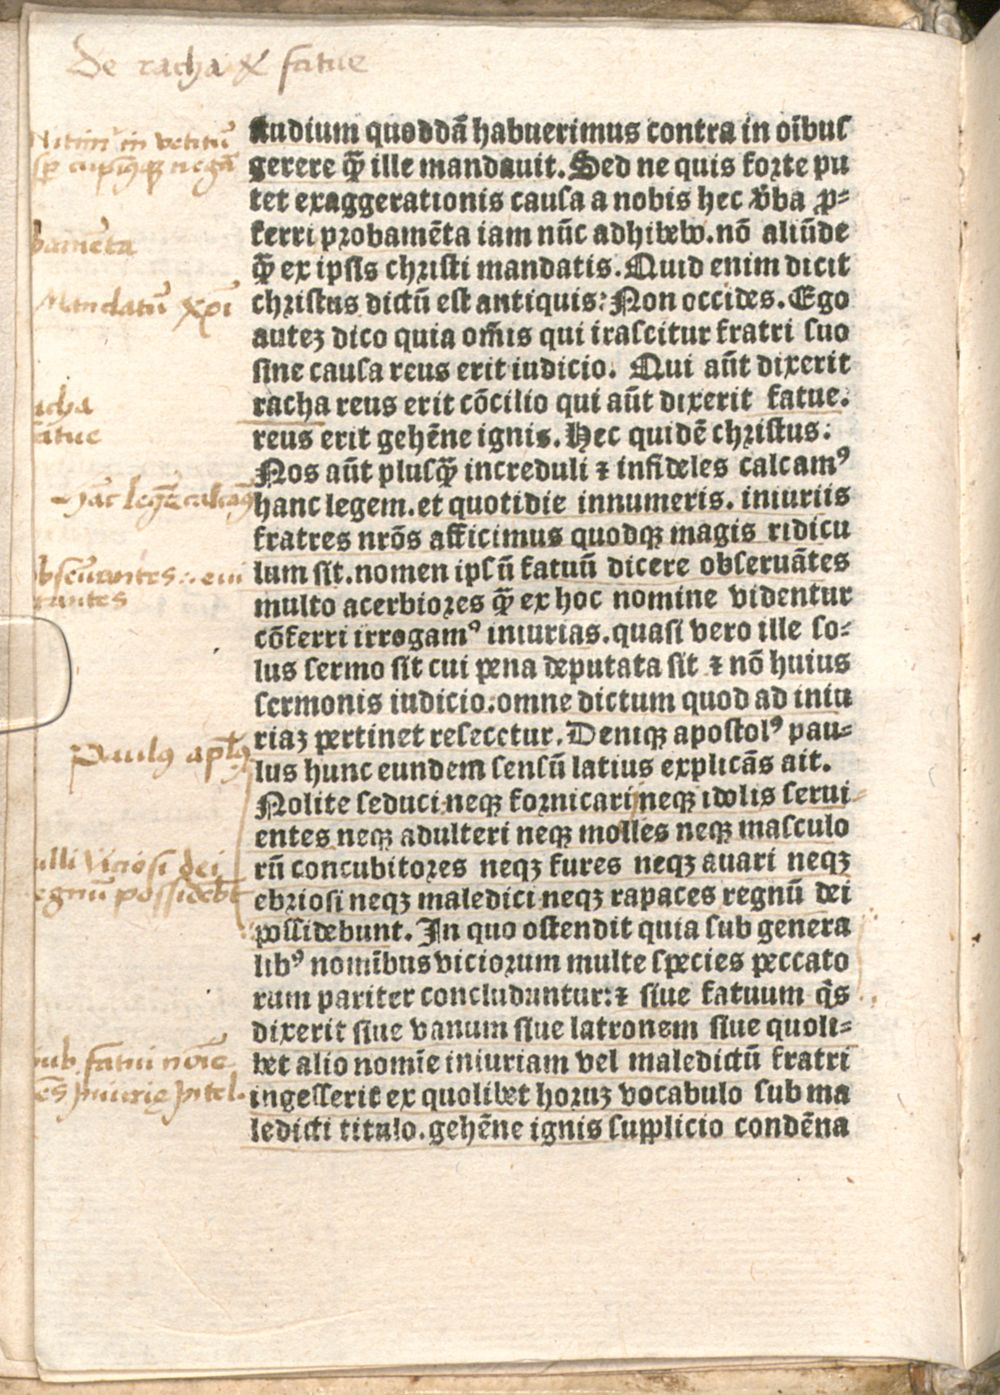 De racha & fatue
Nitim̃ in vetitũ
sp̱ cupimꝰq̃ꝫ negã
studium quoddã habuerimus contra in oĩbus
gerere q̃ ille mandauit. Sed ne quis forte pu
tet exaggerationis causa a nobis hec v̾ba ꝓ-
ferri probamẽta iam nũc adhibebo. nõ aliũde
q̃ ex ipsis christi mandatis. Quid enim dicit
christus dictũ est antiquis: Non occides. Ego
auteʒ dico quia om̃is qui irascitur fratri suo
sine causa reus erit iudicio. Qui aũt dixerit
racha reus erit cõcilio qui aũt dixerit fatue.
reus erit gehẽne ignis. Hec quidẽ christus:
Nos aũt plusq̃ increduli ⁊ infideles calcamꝰ
hanc legem. et quotidie innumeris. iniuriis
fratres nrõs afficimus quodqꝫ magis ridicu
lum sit. nomen ipsũ fatuũ dicere obseruãtes
multo acerbiores q̃ ex hoc nomine videntur
cõferri irrogamꝰ iniurias. quasi vero ille so-
lus sermo sit cui pena deputata sit ⁊ nõ huius
sermonis iudicio. omne dictum quod ad iniu
riaʒ pertinet resecetur. Deniqꝫ apostolꝰ pau-
lus hunc eundem sensũ latius explicãs ait.
Nolite seduci neqꝫ fornicari neqꝫ idolis serui
entes neqꝫ adulteri neqꝫ molles neqꝫ masculo
rũ concubitores neqꝫ fures neqꝫ auari neqꝫ
ebriosi neqꝫ maledici neqꝫ rapaces regnũ dei
possidebunt. In quo ostendit quia sub genera
libꝰ nomĩbus viciorum multe species peccato
rum pariter concluduntur: ⁊ siue fatuum q̃s
dixerit siue vanum siue latronem siue quoli-
bet alio nomĩe iniuriam vel maledictũ fratri
ingesserit ex quolibet horuʒ vocabulo sub ma
ledicti titulo. gehẽne ignis supplicio condẽna
bamẽta
Mandatũ xp̃i
acha
atue
Hãc legẽ calcamꝰ
bseruantes
rantes
Paulꝰ apl̃us
ulli viciosi dei
egnũ possidebt̃
sub fatui noĩe